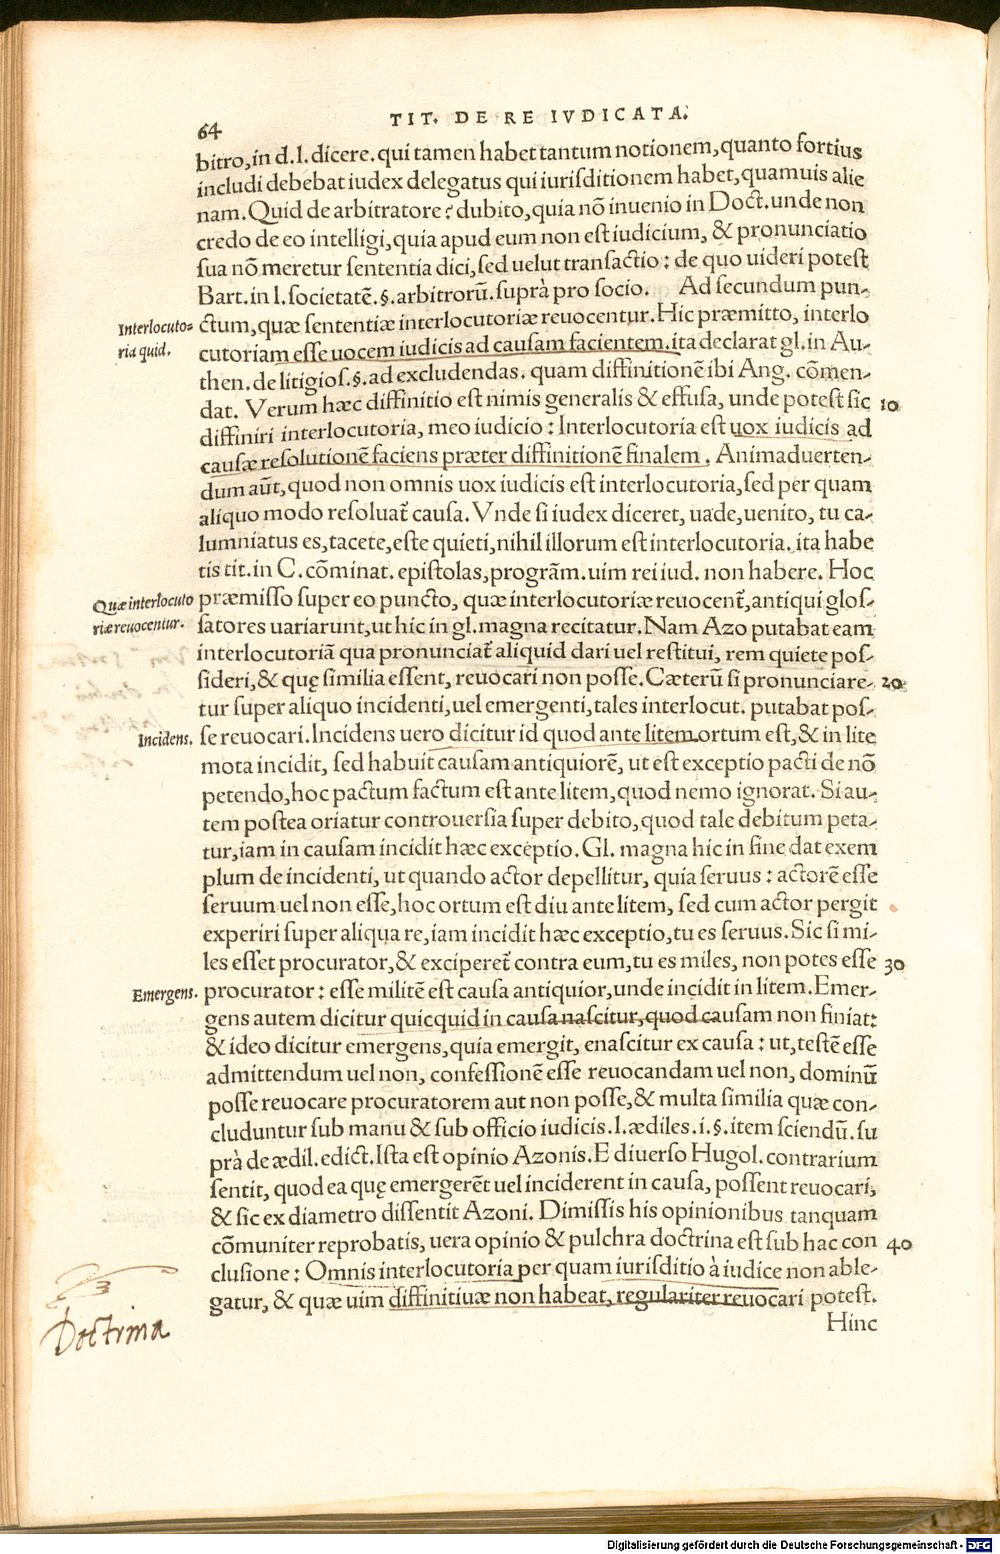 64
TIT. DE RE IVDICATA.
bitro, in d.l. dicere. qui tamen habet tantum notionem, quanto fortius
includi debebat iudex delegatus qui iurisditionem habet, quamuis alie
nam. Quid de arbitratore? dubito, quia nõ inuenio in Doct. unde non
credo de eo intelligi, quia apud eum non est iudicium, & pronunciatio
sua nõ meretur sententia dici, sed uelut transactio: de quo uideri potest
Bart. in l. societatẽ. §. arbitrorũ. suprà pro socio. Ad secundum pun-
Interlocuto=
ctum, quæ sententiæ interlocutoriæ reuocentur. Hic præmitto, interlo
ria quid.
cutoriam esse uocem iudicis ad causam facientem. ita declarat gl. in Au-
then. de litigios. §. ad excludendas. quam diffinitionẽ ibi Ang. cõmen-
dat. Verum hæc diffinitio est nimis generalis & effusa, unde potest sic 10
diffiniri interlocutoria, meo iudicio: Interlocutoria est uox iudicis ad
causæ resolutionẽ faciens præter diffinitionẽ finalem. Animaduerten-
dum aũt, quod non omnis uox iudicis est interlocutoria, sed per quam
aliquo modo resoluat̃ causa. Vnde si iudex diceret, uade, uenito, tu ca-
lumniatus es, tacete, este quieti, nihil illorum est interlocutoria. ita habe
tis tit. in C. cõminat. epistolas, progrãm. uim rei iud. non habere. Hoc
Quæ interlocuto
præmisso super eo puncto, quæ interlocutoriæ reuocent̃, antiqui glos-
riæ reuocentur.
satores uariarunt, ut hic in gl. magna recitatur. Nam Azo putabat eam
interlocutoriã qua pronunciat̃ aliquid dari uel restitui, rem quiete pos-
sideri, & quę similia essent, reuocari non posse. Cæterũ si pronunciare- 20
tur super aliquo incidenti, uel emergenti, tales interlocut. putabat pos-
Incidens.
se reuocari. Incidens uero dicitur id quod ante litem ortum est, & in lite
mota incidit, sed habuit causam antiquiorẽ, ut est exceptio pacti de nõ
petendo, hoc pactum factum est ante litem, quod nemo ignorat. Si au-
tem postea oriatur controuersia super debito, quod tale debitum peta-
tur, iam in causam incidit hæc exceptio. Gl. magna hic in fine dat exem
plum de incidenti, ut quando actor depellitur, quia seruus: actorẽ esse
seruum uel non esse, hoc ortum est diu ante litem, sed cum actor pergit
experiri super aliqua re, iam incidit hæc exceptio, tu es seruus. Sic si mi-
les esset procurator, & exciperet̃ contra eum, tu es miles, non potes esse 30
Emergens.
procurator: esse militẽ est causa antiquior, unde incidit in litem. Emer-
gens autem dicitur quicquid in causa nascitur, quod causam non finiat:
& ideo dicitur emergens, quia emergit, enascitur ex causa: ut, testẽ esse
admittendum uel non, confessionẽ esse reuocandam uel non, dominũ
posse reuocare procuratorem aut non posse, & multa similia quæ con-
cluduntur sub manu & sub officio iudicis. l. ædiles. i. §. item sciendũ. su
prà de ædil. edict. Ista est opinio Azonis. E diuerso Hugol. contrarium
sentit, quod ea quę emergerẽt uel inciderent in causa, possent reuocari,
& sic ex diametro dissentit Azoni. Dimissis his opinionibus tanquam
cõmuniter reprobatis, uera opinio & pulchra doctrina est sub hac con 40
clusione: Omnis interlocutoria per quam iurisditio à iudice non able-
gatur, & quæ uim diffinitiuæ non habeat, regulariter reuocari potest.
Doctrima
Hinc
Digitalisierung gefördert durch die Deutsche Forschungsgemeinschaft - DFG